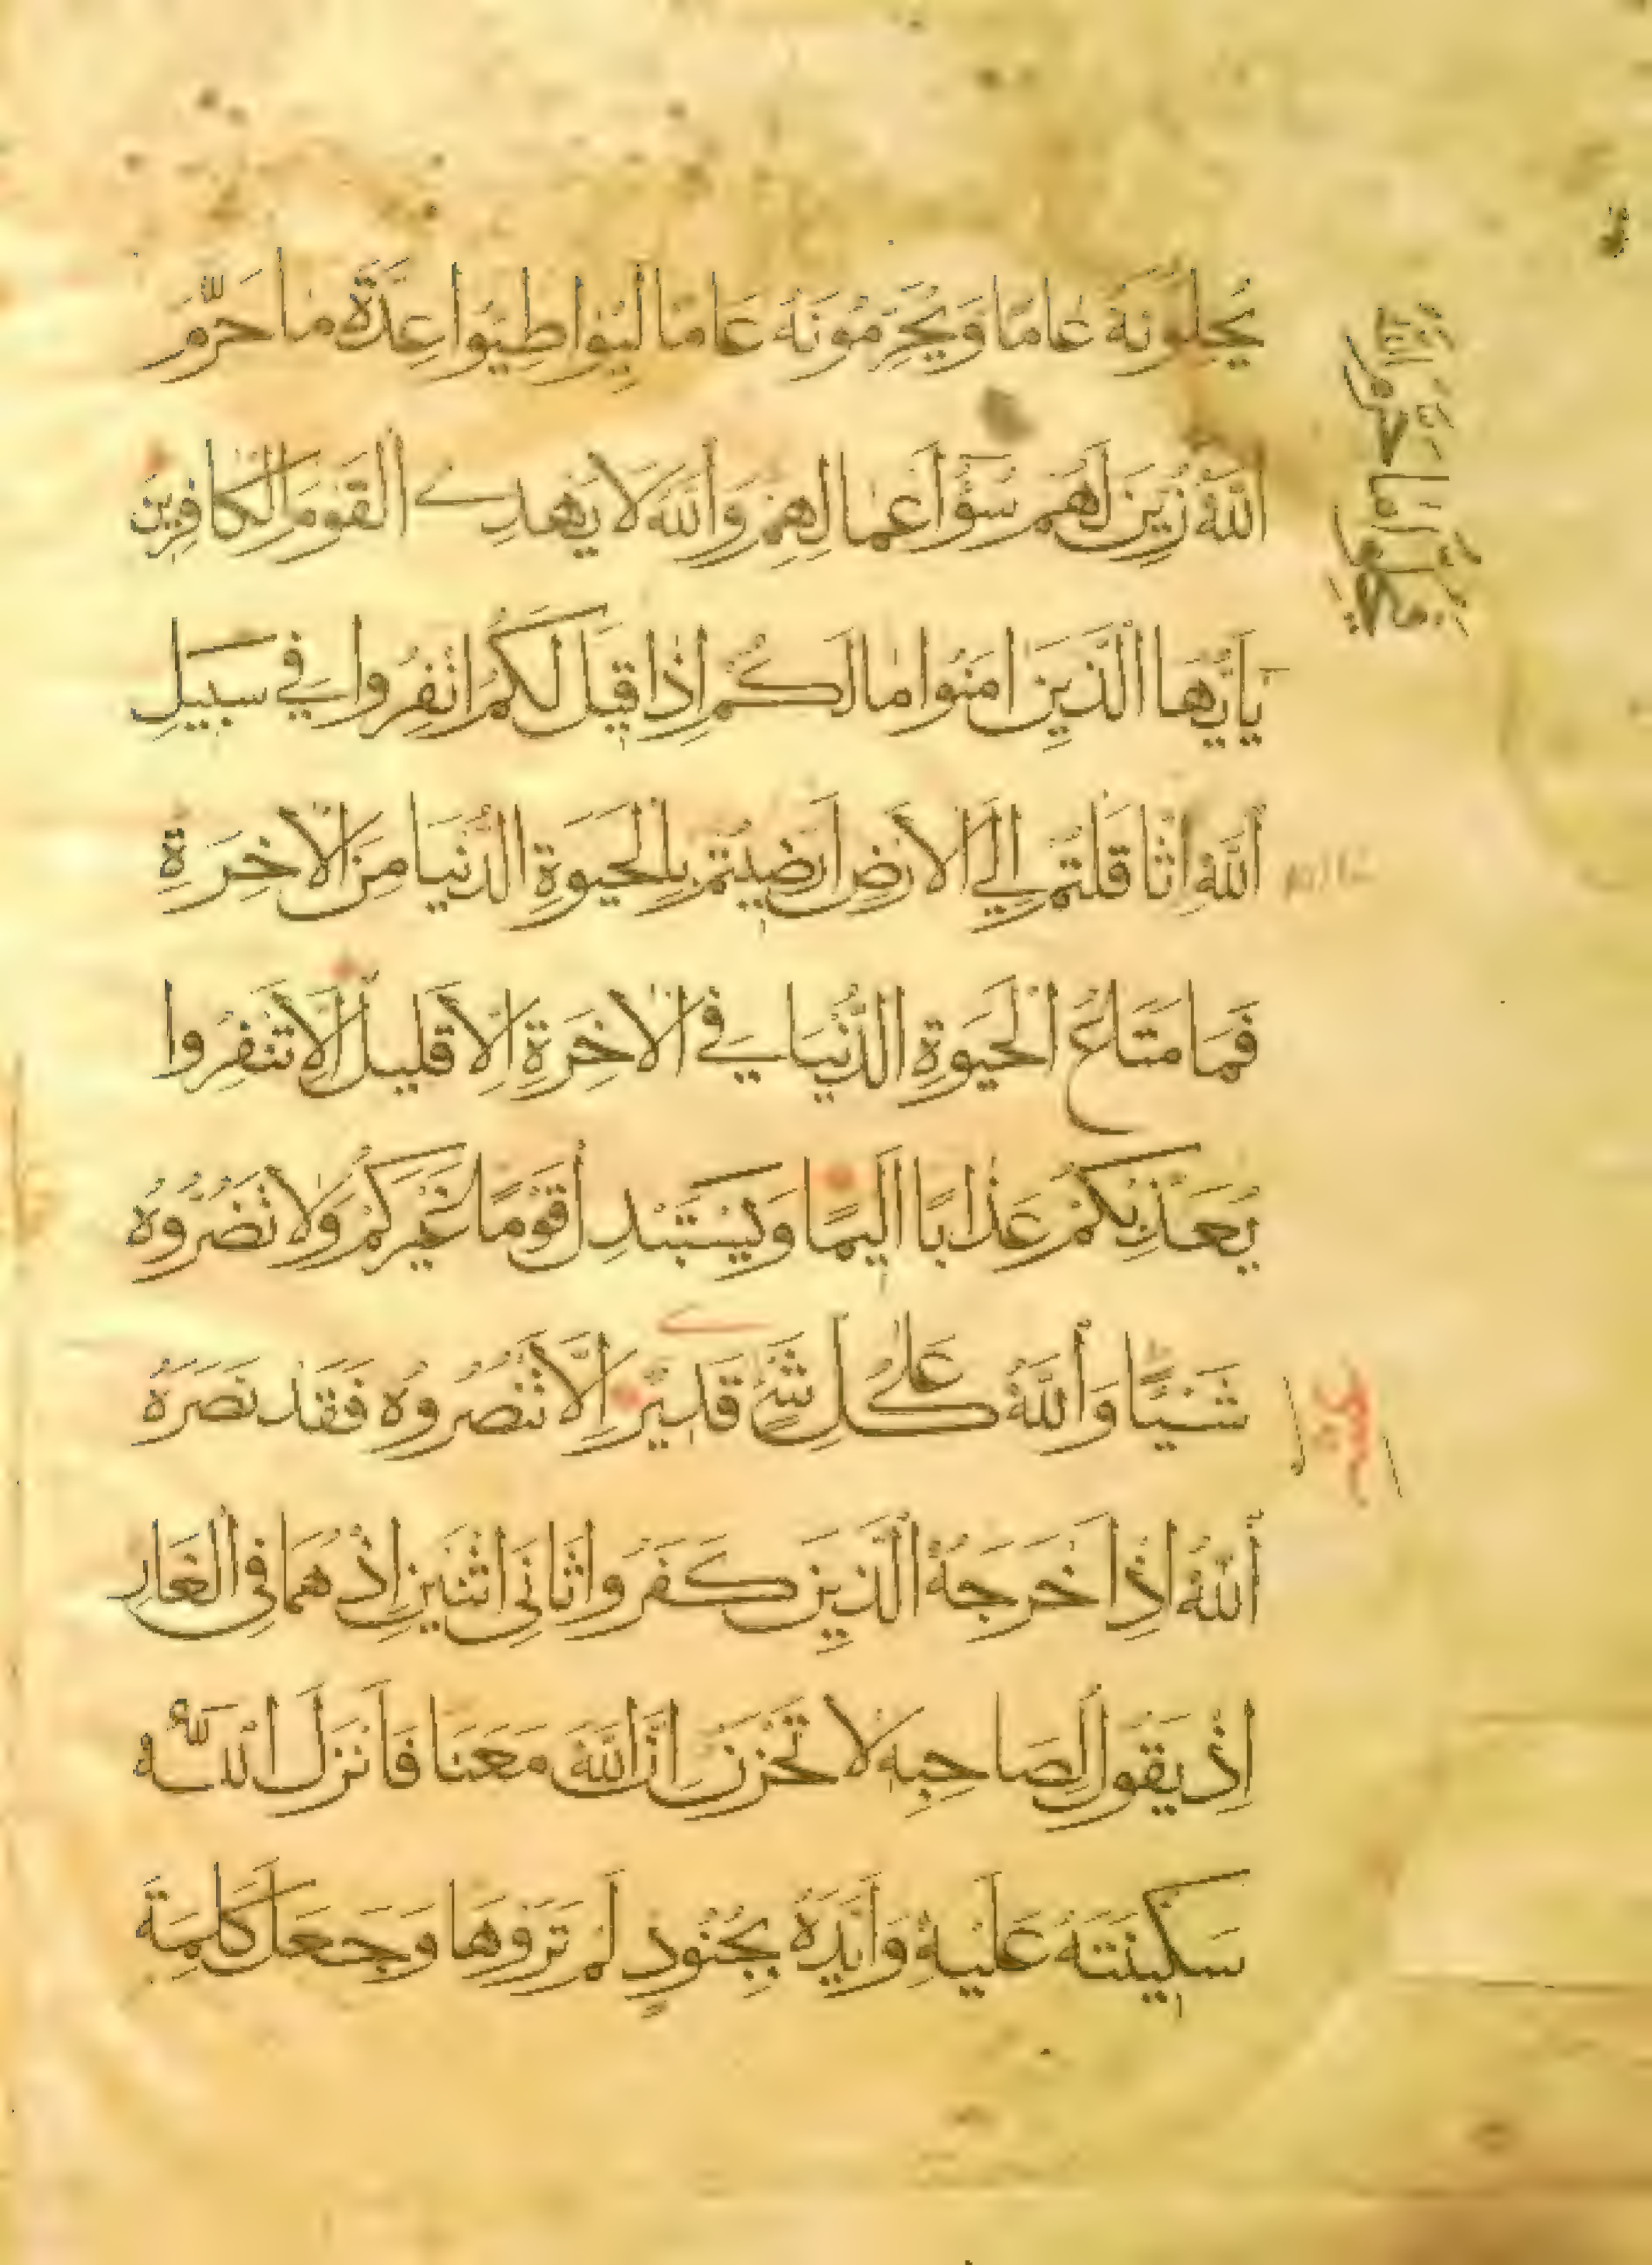 يُحِلُّونَهُ عَامًا وَيُحَرِّمُونَهُ عَامًا لِيُوَاطِئُوا عِدَّةَ مَا حَرَّمَ
اللَّهُ زُيِّنَ لَهُمْ سُوءُ أَعْمَالِهِمْ وَاللَّهُ لَا يَهْدِي الْقَوْمَ الْكَافِرِينَ
يَا أَيُّهَا الَّذِينَ آمَنُوا مَا لَكُمْ إِذَا قِيلَ لَكُمُ انْفِرُوا فِي سَبِيلِ
اللَّهِ اثَّاقَلْتُمْ إِلَى الْأَرْضِ أَرَضِيتُمْ بِالْحَيَوةِ الدُّنْيَا مِنَ الْآخِرَةِ
فَمَا مَتَاعُ الْحَيَوةِ الدُّنْيَا فِي الْآخِرَةِ إِلَّا قَلِيلٌ إِلَّا تَنْفِرُوا
يُعَذِّبْكُمْ عَذَابًا أَلِيمًا وَيَسْتَبْدِلْ قَوْمًا غَيْرَكُمْ وَلَا تَضُرُّوهُ
شَيْئًا وَاللَّهُ عَلَى كُلِّ شَيْءٍ قَدِيرٌ إِلَّا تَنْصُرُوهُ فَقَدْ نَصَرَهُ
اللَّهُ إِذْ أَخْرَجَهُ الَّذِينَ كَفَرُوا ثَانِيَ اثْنَيْنِ إِذْ هُمَا فِي الْغَارِ
إِذْ يَقُولُ لِصَاحِبِهِ لَا تَحْزَنْ إِنَّ اللَّهَ مَعَنَا فَأَنْزَلَ اللَّهُ
سَكِينَتَهُ عَلَيْهِ وَأَيَّدَهُ بِجُنُودٍ لَمْ تَرَوْهَا وَجَعَلَ كَلِمَةَ
فَيُحِلُّوا مَا حَرَّمَ اللَّهُ